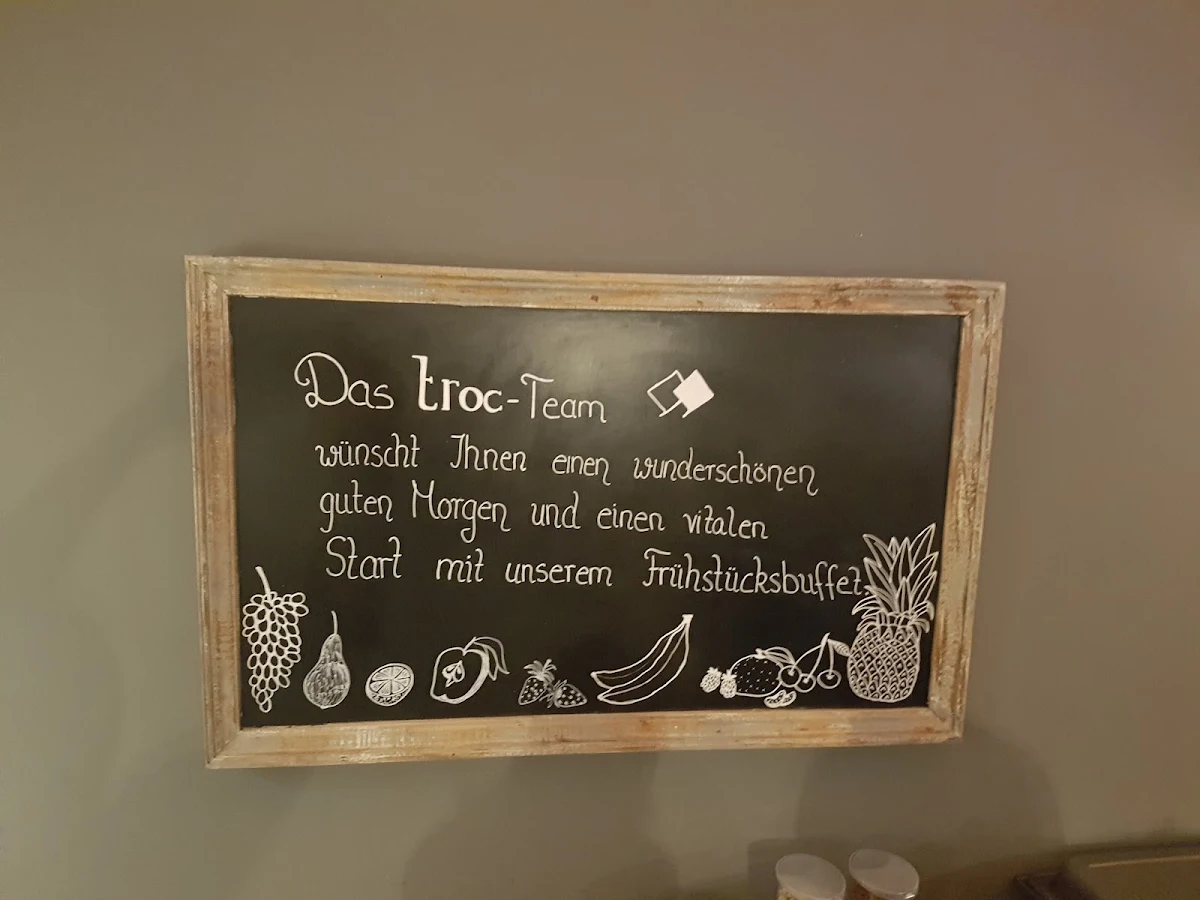 Das troc-Team
wünscht Ihnen einen wunderschönen
guten Morgen und einen vitalen
Start mit unserem Frühstücksbuffet.